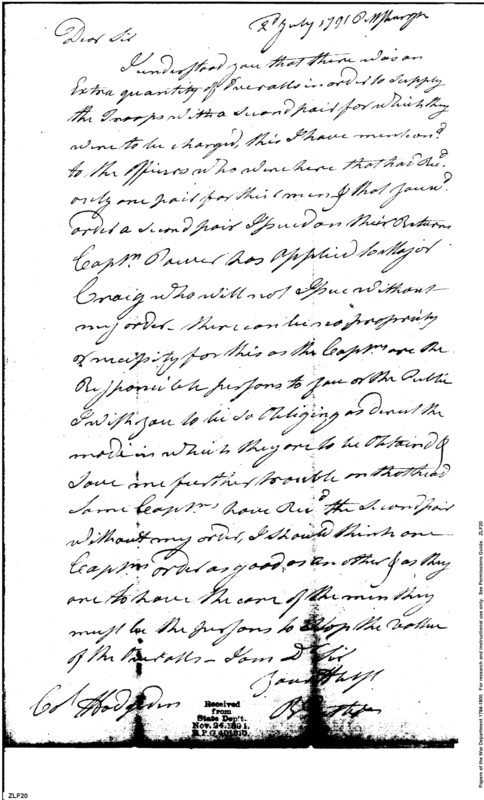 2d July 1791 Pittsburgh
Dear Sir
I understood you that there was an
Extra quantity of Overalls in order to Supply
the Troops with a Second pair for which they
were to be charged, this I have mentiond
to the Officers who were here that had Recd
only one pair for their men & that you wd
order a Second pair Issued on their Returns
Captn Power has applied to Major
Craig who will not Issue without
my order - there can be no propriety
or necissity for this as the Captns are the
Responcible persons to you or the Public
I wish you to be so Obliging as direct the
mode in which they are to be Obtaind &
Save me further trouble on that head
Some Captns have Recd the Second pair
without my order, I should think one
Captns order as good as another & as they
are to have the care of the men they
must be the persons to Stop the value
of the Overalls - I am Dr Sir
Your Hbl St
Col Hodgdon
Received
from
State Dep't.
Nov. 24. 1894.
R.P.O. 401870.
Papers of the War Department 1784-1800. For research and instructional use only. See Permissions Guide. ZLF20
ZLF20